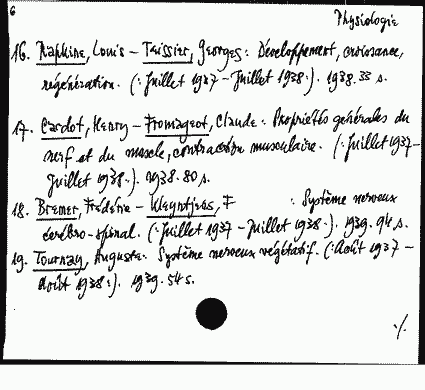 6
Physiologie
16. Rapkine, Louis – Teissier, Georges: Développement, croissance,
régénération. (: Juillet 1937 – Juillet 1938 :). 1938. 33 s.
17. Cardot, Henry – Fromageot, Claude: Propriétés générales du
nerf et du muscle, contraction musculaire. (: Juillet 1937 –
Juillet 1938 :). 1938. 80 s.
18. Bremer, Frédéric – F : Système nerveux
cérébro-spinal. (: Juillet 1937 – Juillet 1938 :). 1939. 94 s.
19. Tournay, Auguste: Système nerveux végétatif. (: Août 1937 –
Août 1938 :). 1939. 54 s.
./.